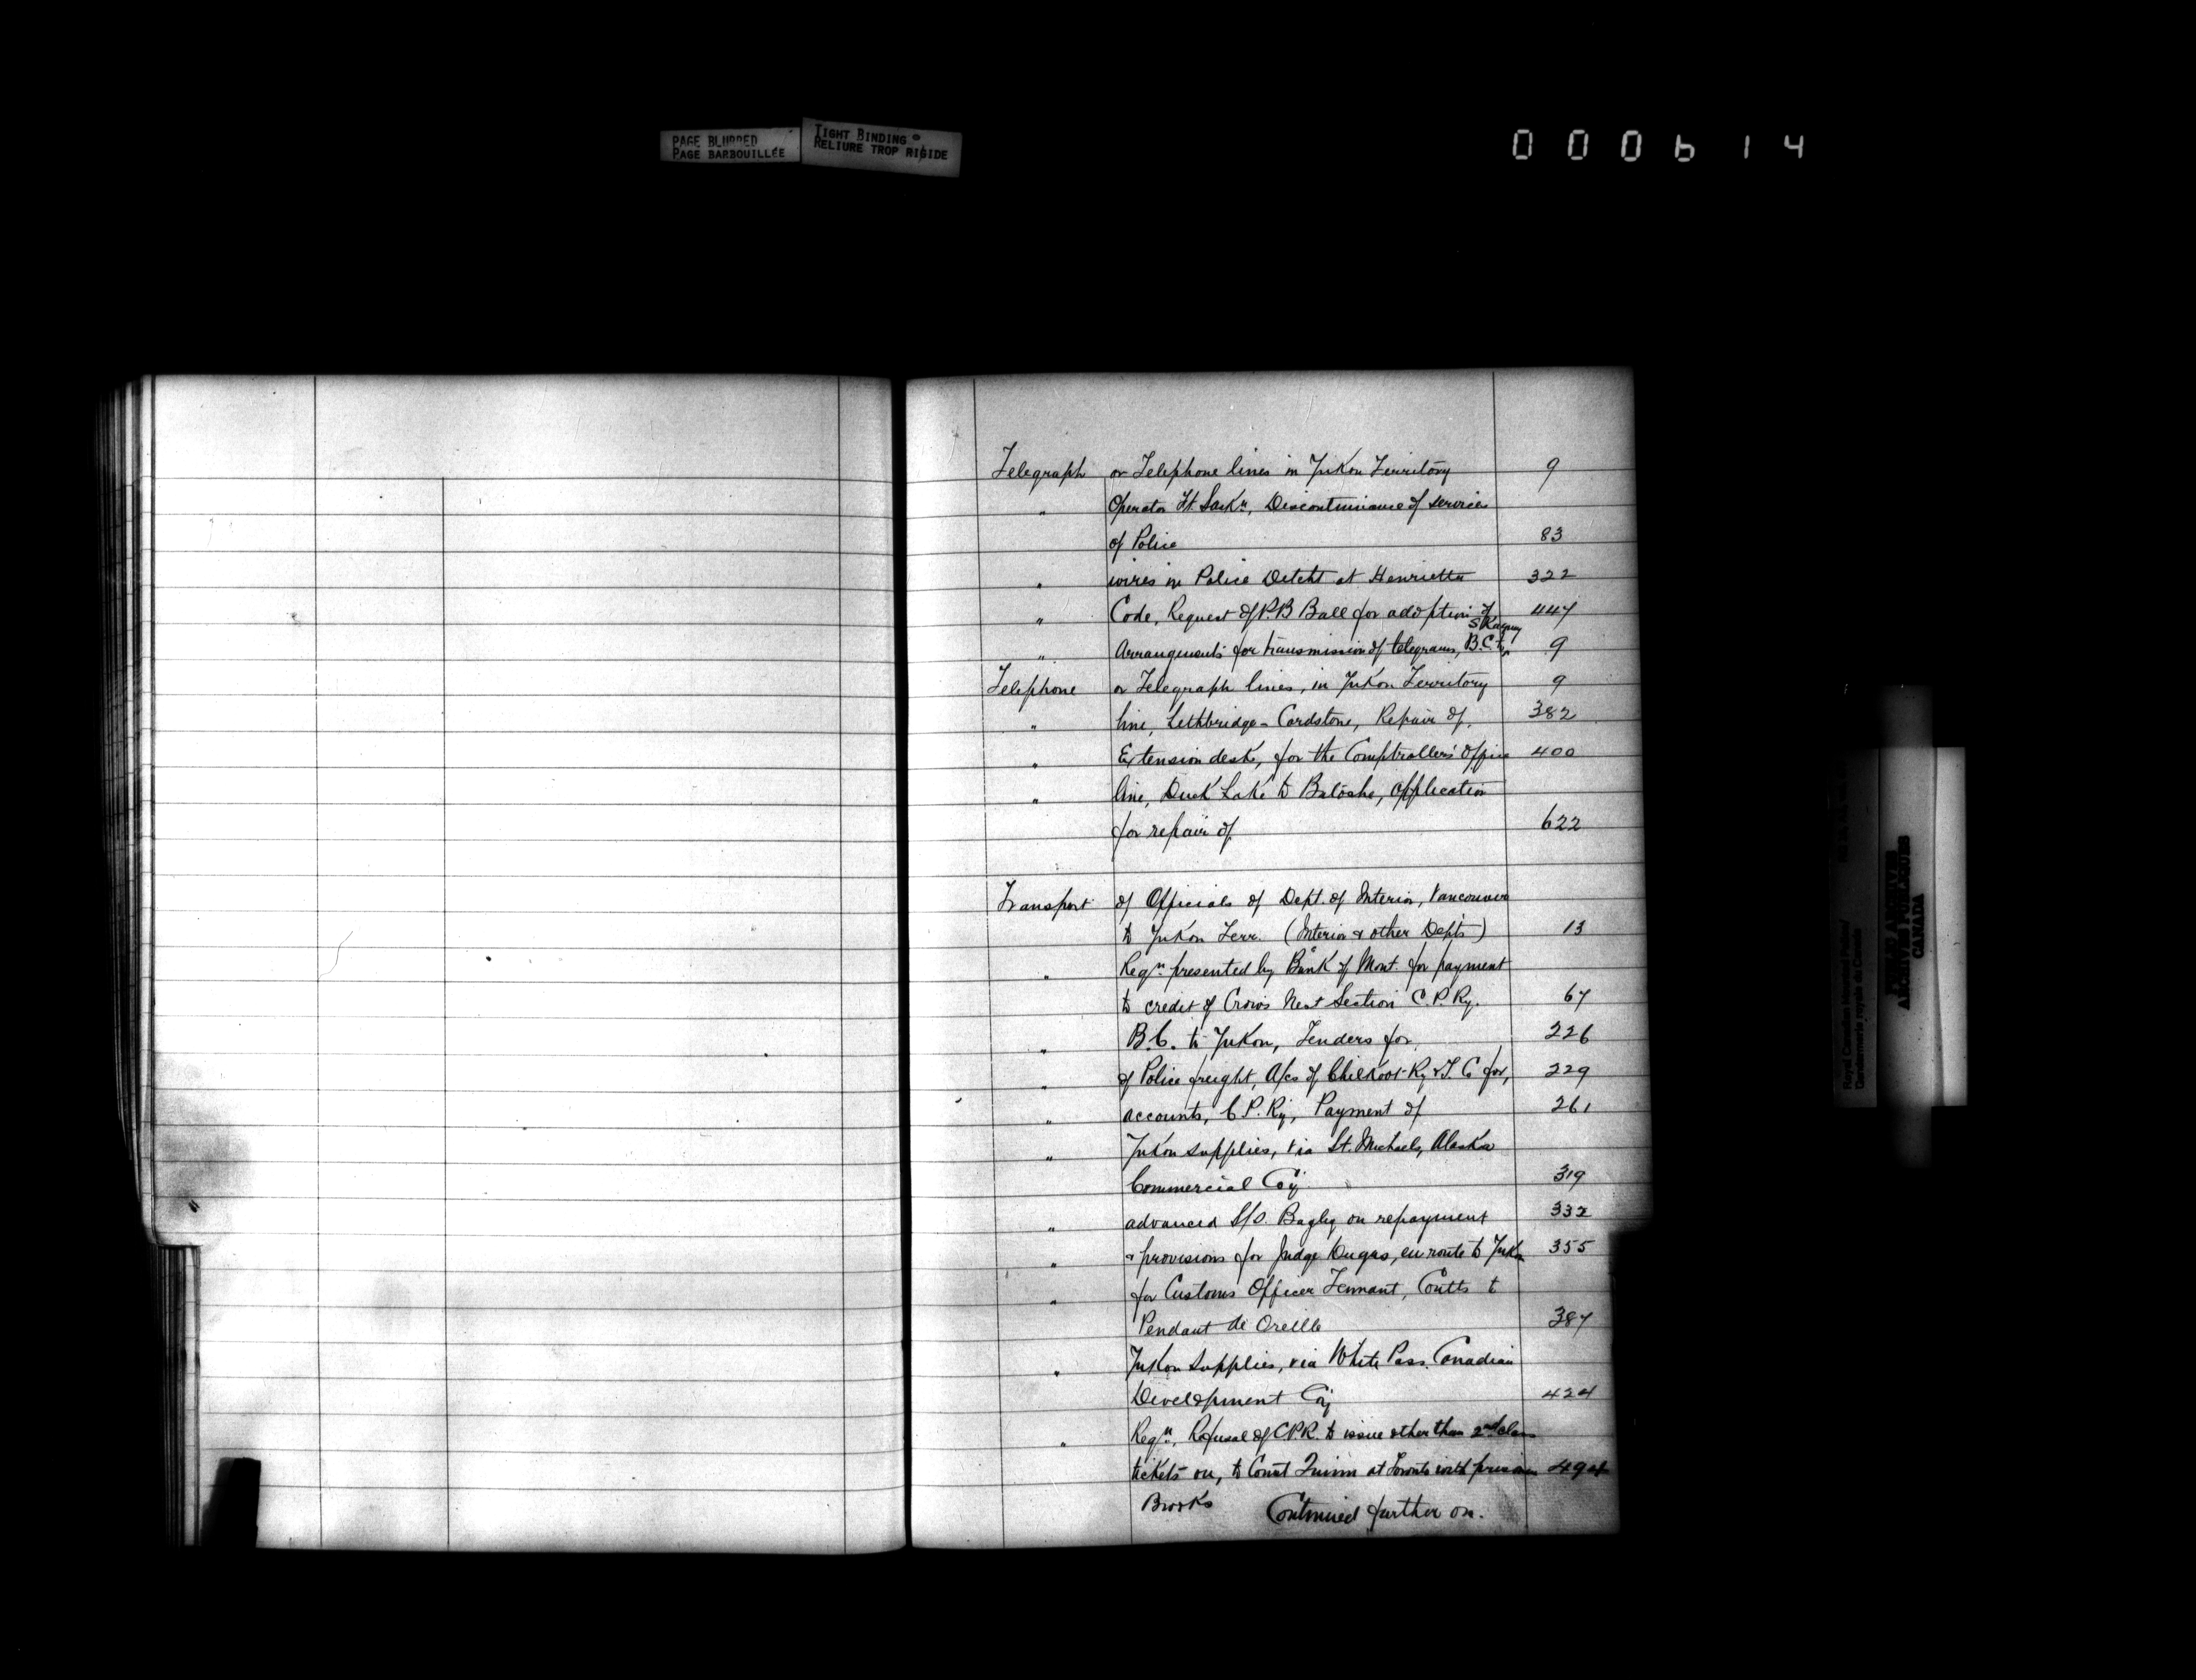 PAGE BLURRED
PAGE BARBOUILLÉE
TIGHT BINDING
RELIURE TROP RIGIDE
000614
Telegraph or Telephone lines in Yukon Territory 9
" Operator Ft. Sask<sup>n</sup>, Discontinuance of services
of Police 83
" wires in Police Detcht at Henrietta 322
" Code, Request of P.B Ball for adoption of 447
Skagway
" Arrangements for transmission of telegrams, B.C. to 9
Telephone or Telegraph lines, in Yukon Territory 9
" line, Lethbridge - Cardstone, Repair of. 382
" Extension desk, for the Comptroller's Office 400
" line, Duck Lake to Batoche, application
for repair of 622
Transport of Officials of Dept. of Interior, Vancouver
to Yukon Terr. (Interior & other Depts) 13
" Reqn presented by Bank of Mont. for payment
to credit of Crow's Nest Section C.P.Ry. 67
" B.C. to Yukon, Tenders for 226
" of Police freight, A/cs of Chilkoot Ry & T. Co for, 229
" accounts, C P. Ry, Payment of 261
" Yukon supplies, via St. Michaels, Alaska
Commercial Coy 319
" advanced S/S. Bagley on repayment 332
" & provisions for Judge Dugas, en route to Yukon 355
" for Customs Officer Tennant, Coutts to
Pendant de Oreille 387
" Yukon supplies, via White Pass. Canadian
Development Coy 424
" Reqn, Refusal of C.P.R. to issue other than 2nd class
tickets on, to Const Quinn at Toronto with prisoner 494
Brooks Continued further on.
PUBLIC ARCHIVES
ARCHIVES PUBLIQUES
CANADA
Royal Canadian Mounted Police/
Gendarmerie royale du Canada